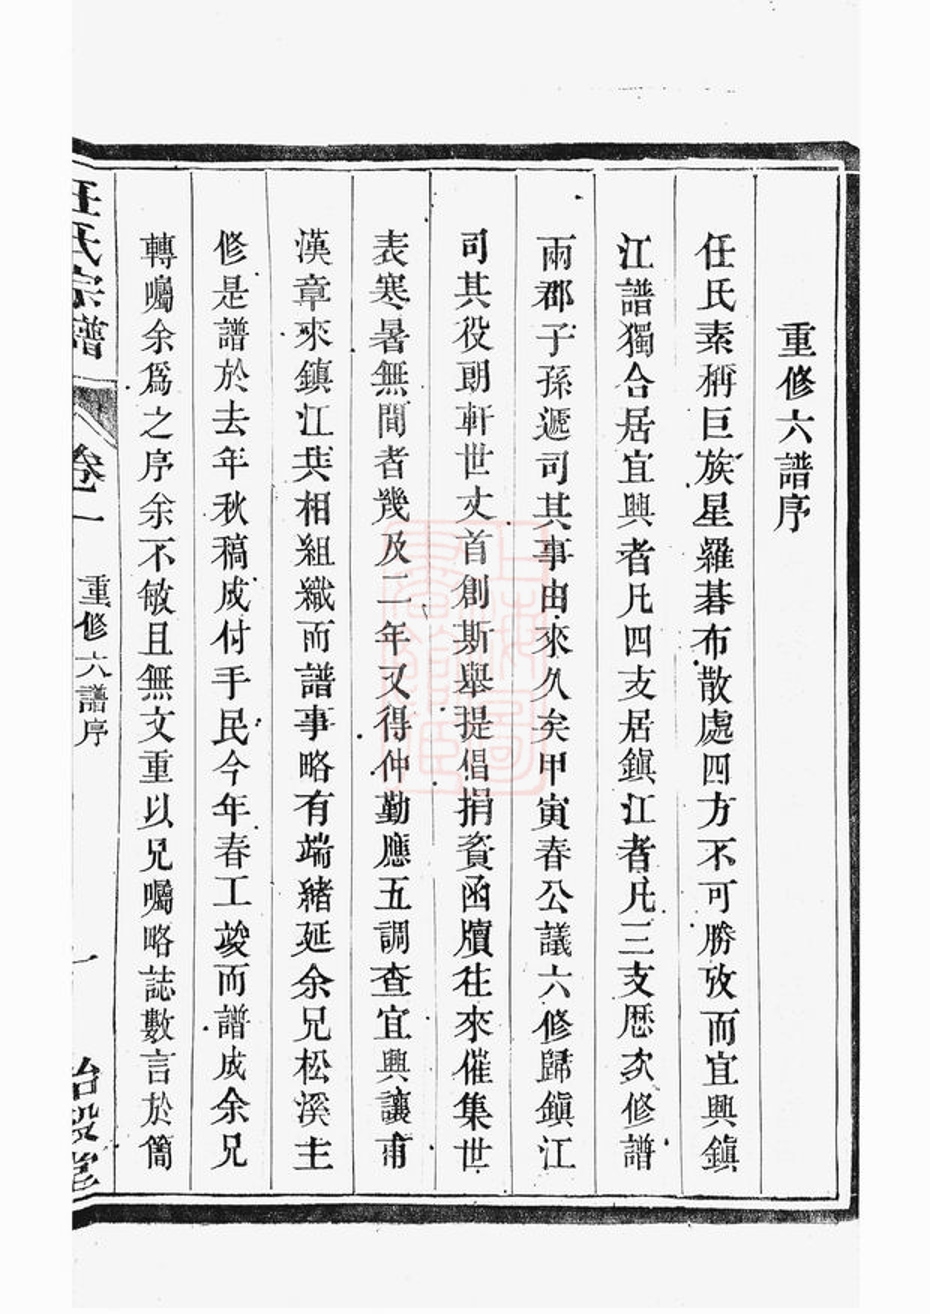 重修六譜序
任氏素稱巨族星羅碁布散處四方不可勝攷而宜興鎭
江譜獨合居宜興者凡四支居鎭江者凡三支歴次修譜
兩郡子孫遞司其事由來久矣甲寅春公議六修歸鎭江
司其役朗軒世丈首創斯舉提倡捐資函牘往來催集世
表寒暑無間者幾及二年又得仲勤應五調查宜興讓甫
漢章來鎭江共相組織而譜事略有端緒延余兄松溪主
修是譜於去年秋稿成付手民今年春工竣而譜成余兄
轉囑余爲之序余不敏且無文重以兄囑略誌數言於簡
任氏宗譜
卷一
重修六譜序
一